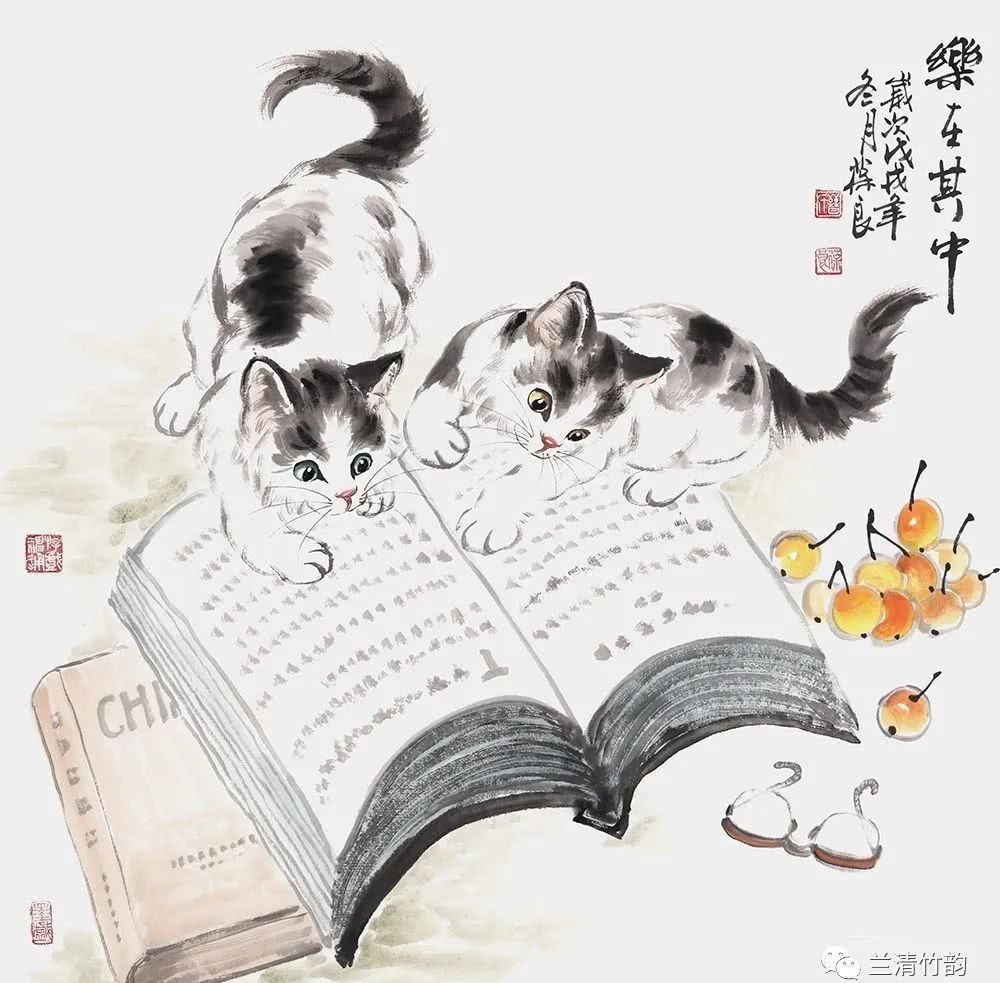 樂在其中
歲次戊戌年
冬月葆良
CHI
兰清竹韵